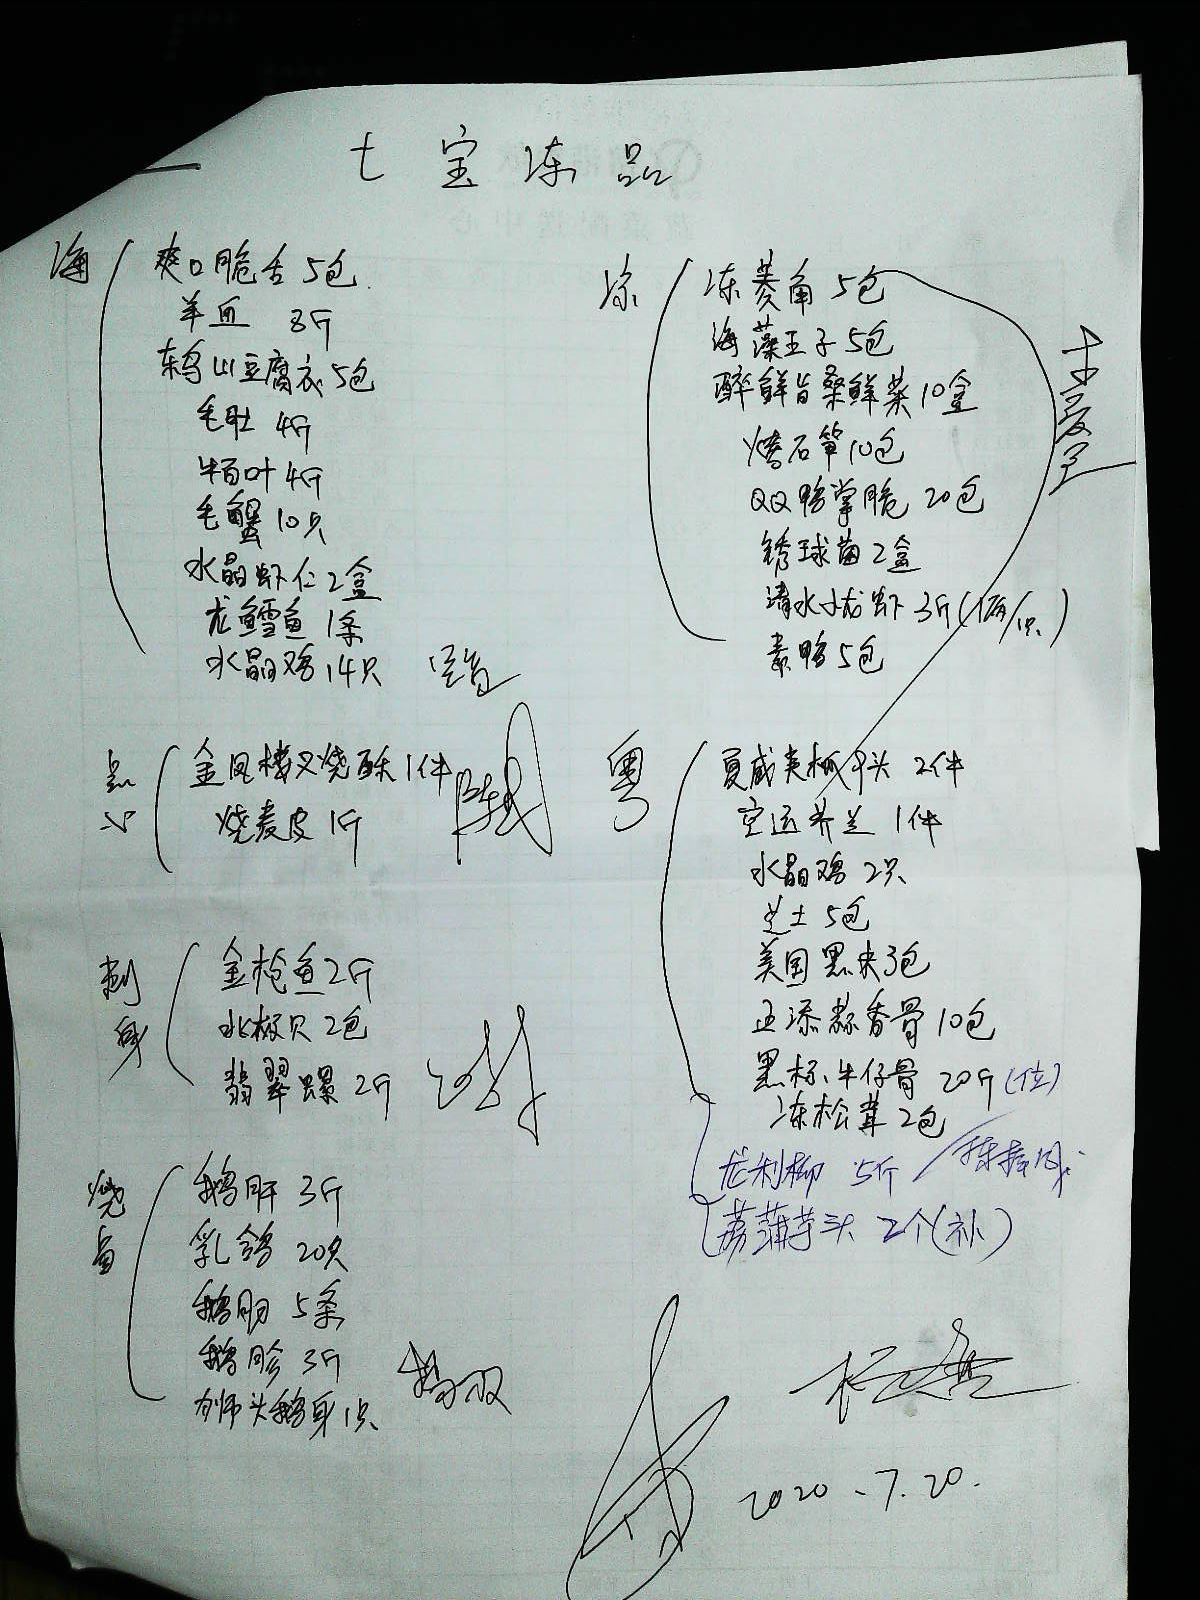 七宝冻品
海
爽口脆舌 5包
羊血 8斤
东乌山豆腐衣 5包
毛肚 4斤
牛百叶 4斤
毛蟹 10只
水晶虾仁 2盒
龙鳕鱼 1条
水晶鸡 14只
点心
金凤楼叉烧酥 1件
烧麦皮 1斤
刺身
金枪鱼 2斤
北极贝 2包
翡翠螺 2斤
烧
鹅肝 3斤
乳鸽 20只
鹅肠 5条
鹅胗 3斤
狮头鹅身 1只
凉
冻菱角 5包
海藻王子 5包
醉鲜旨桑鲜菜 10盒
烤石笋 10包
QQ鸭掌脆 20包
锈球菌 2盒
清水小龙虾 3斤(1两/只)
素鸭 5包
粤
夏威夷木瓜 2件
空运芥兰 1件
水晶鸡 2只
芝士 5包
美国黑夹 3包
正添蒜香骨 10包
黑标牛仔骨 20斤(位)
冻松茸 2包
龙利柳 5斤
荔蒲芋头 2个(补)
2020.7.20.